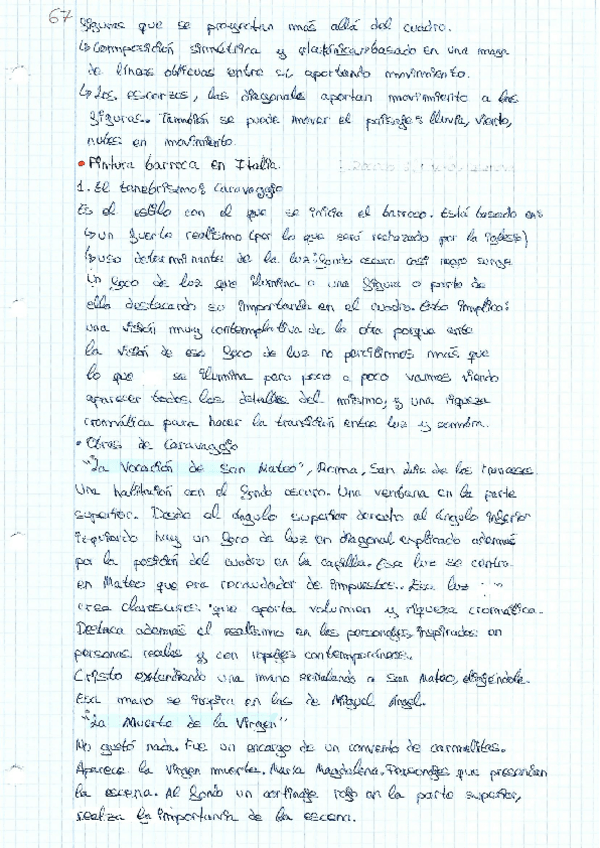 67
figuras que se proyectan más allá del cuadro.
↳ Composición simétrica y basado en una maga
de líneas oblicuas entre sí aportando movimiento.
↳ Los escorzos, las diagonales aportan movimiento a las
figuras. También se puede mover el paisaje: lluvia, viento,
nubes en movimiento.
• Pintura barroca en Italia.
1. El tenebrismo: Caravaggio
Es el estilo con el que se inicia el barroco. Está basado en:
↳ un fuerte realismo (por lo que será rechazado por la iglesia)
↳ uso determinante de la luz: fondo oscuro casi negro surge
un foco de luz que ilumina a una figura o parte de
ella destacando su importancia en el cuadro. Esto implica:
una visión muy contemplativa de la obra porque ante
la visión de ese foco de luz no percibimos más que
lo que se ilumina pero poco a poco vamos viendo
aparecer todos los detalles del mismo; y una riqueza
cromática para hacer la transición entre luz y sombra.
• Obras de Caravaggio
"La vocación de San Mateo", Roma, San Luis de los franceses.
Una habitación con el fondo oscuro. Una ventana en la parte
superior. Desde el ángulo superior derecho al ángulo inferior
izquierdo hay un foco de luz en diagonal explicado además
por la posición del cuadro en la capilla. Esa luz se centra
en Mateo que era recaudador de impuestos. Esa luz
crea claroscuros que aporta volumen y riqueza cromática.
Destaca además el realismo en los personajes, inspirados en
personas reales y con ropajes contemporáneos.
Cristo extendiendo una mano señalando a San Mateo, eligiéndole.
Esa mano se inspira en las de Miguel Ángel.
"La Muerte de la Virgen"
No gustó nada. Fue un encargo de un convento de carmelitas.
Aparece la Virgen muerta. María Magdalena. Personajes que presencian
la escena. Al fondo un cortinaje rojo en la parte superior,
realza la importancia de la escena.